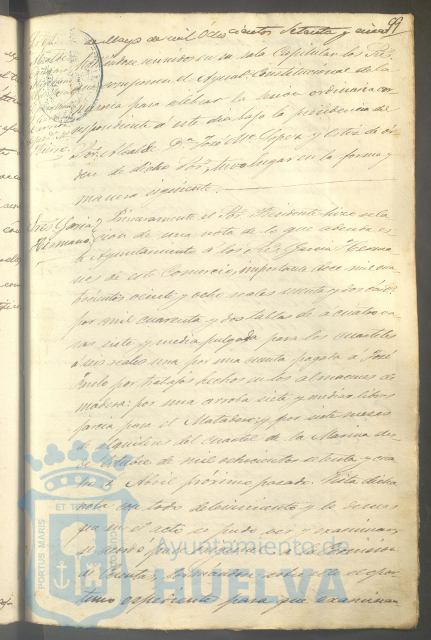 99
de Mayo de mil ochocientos setenta y cinco
reunidos en su sala Capitular los Sres
que componen el Ayunt. Constitucional de la
misma para celebrar la sesion ordinaria cor
respondiente á este dia bajo la presidencia del
Sor. Alcalde Dn. José Ma. Lopez y Ortiz de or
den de dicho Sor. tuvo lugar en la forma y
manera siguiente.
Sres. Garcia
Hermanos
Primeramente el Sor. Presidente hizo rela
cion de una nota de lo que adeuda es
te Ayuntamiento á los Sres. Garcia Herma
nos de este Comercio, importante doce mil cua
trocientos veinte y ocho reales
por mil cuarenta y dos tablas de á cuatro va
ras siete y media pulgadas para los cuarteles
á seis reales una por una cuenta pagada á José
por trabajos hechos en los almacenes de
madera: por una arroba siete y media libras
para el Matadero; y por siete meses
de alquileres del Cuartel de la Marina des
de Octubre de mil ochocientos setenta y cua
tro á Abril próximo pasado. Vista dicha
nota con todo detenimiento y lo demas
que en el acto se pudo ver y examinar,
se acordó pase á la Comision
de Cuentas, formándose sobre ello el opor
tuno expediente para que examinan
PORTUS MARIS
ET
Ayuntamiento de
HUELVA